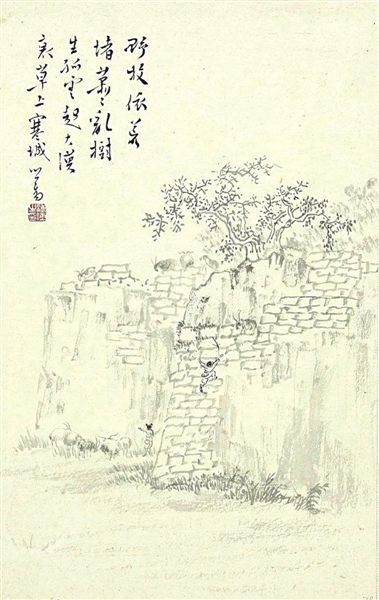 野牧依荒
堵蕭々亂樹
生孤雲起大漠
衰草上寒城 心畬